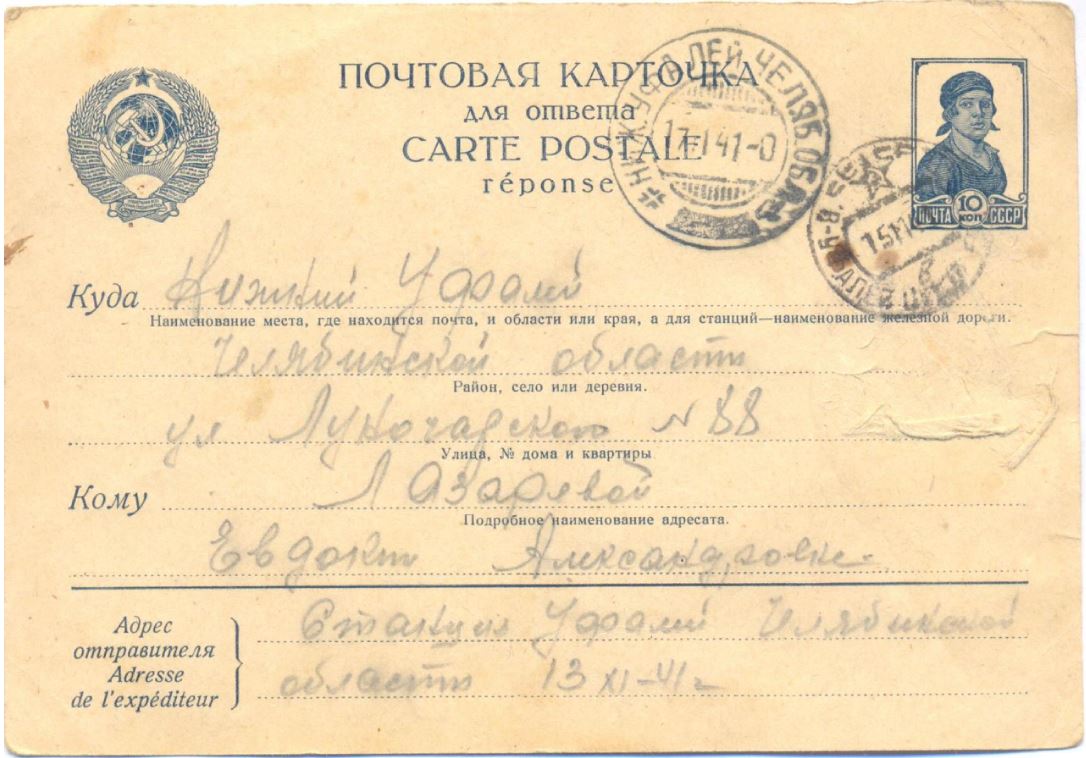 ПОЧТОВАЯ КАРТОЧКА
для ответа
CARTE POSTALE
réponse
НИЖ. УФАЛЕЙ ЧЕЛЯБ. ОБЛ.
ПОЧТА 10 КОП СССР
Куда Нижний Уфалей
Наименование места, где находится почта, и области или края, а для станций—наименование железной дороги.
Челябинской области
Район, село или деревня.
ул Луночарского № 88
Улица, № дома и квартиры
Кому Лазаревой
Подробное наименование адресата.
Евдокт Александровне
Адрес отправителя
Adresse de l'expéditeur
Станция Уфалей Челябинской
области 13 XI-41г